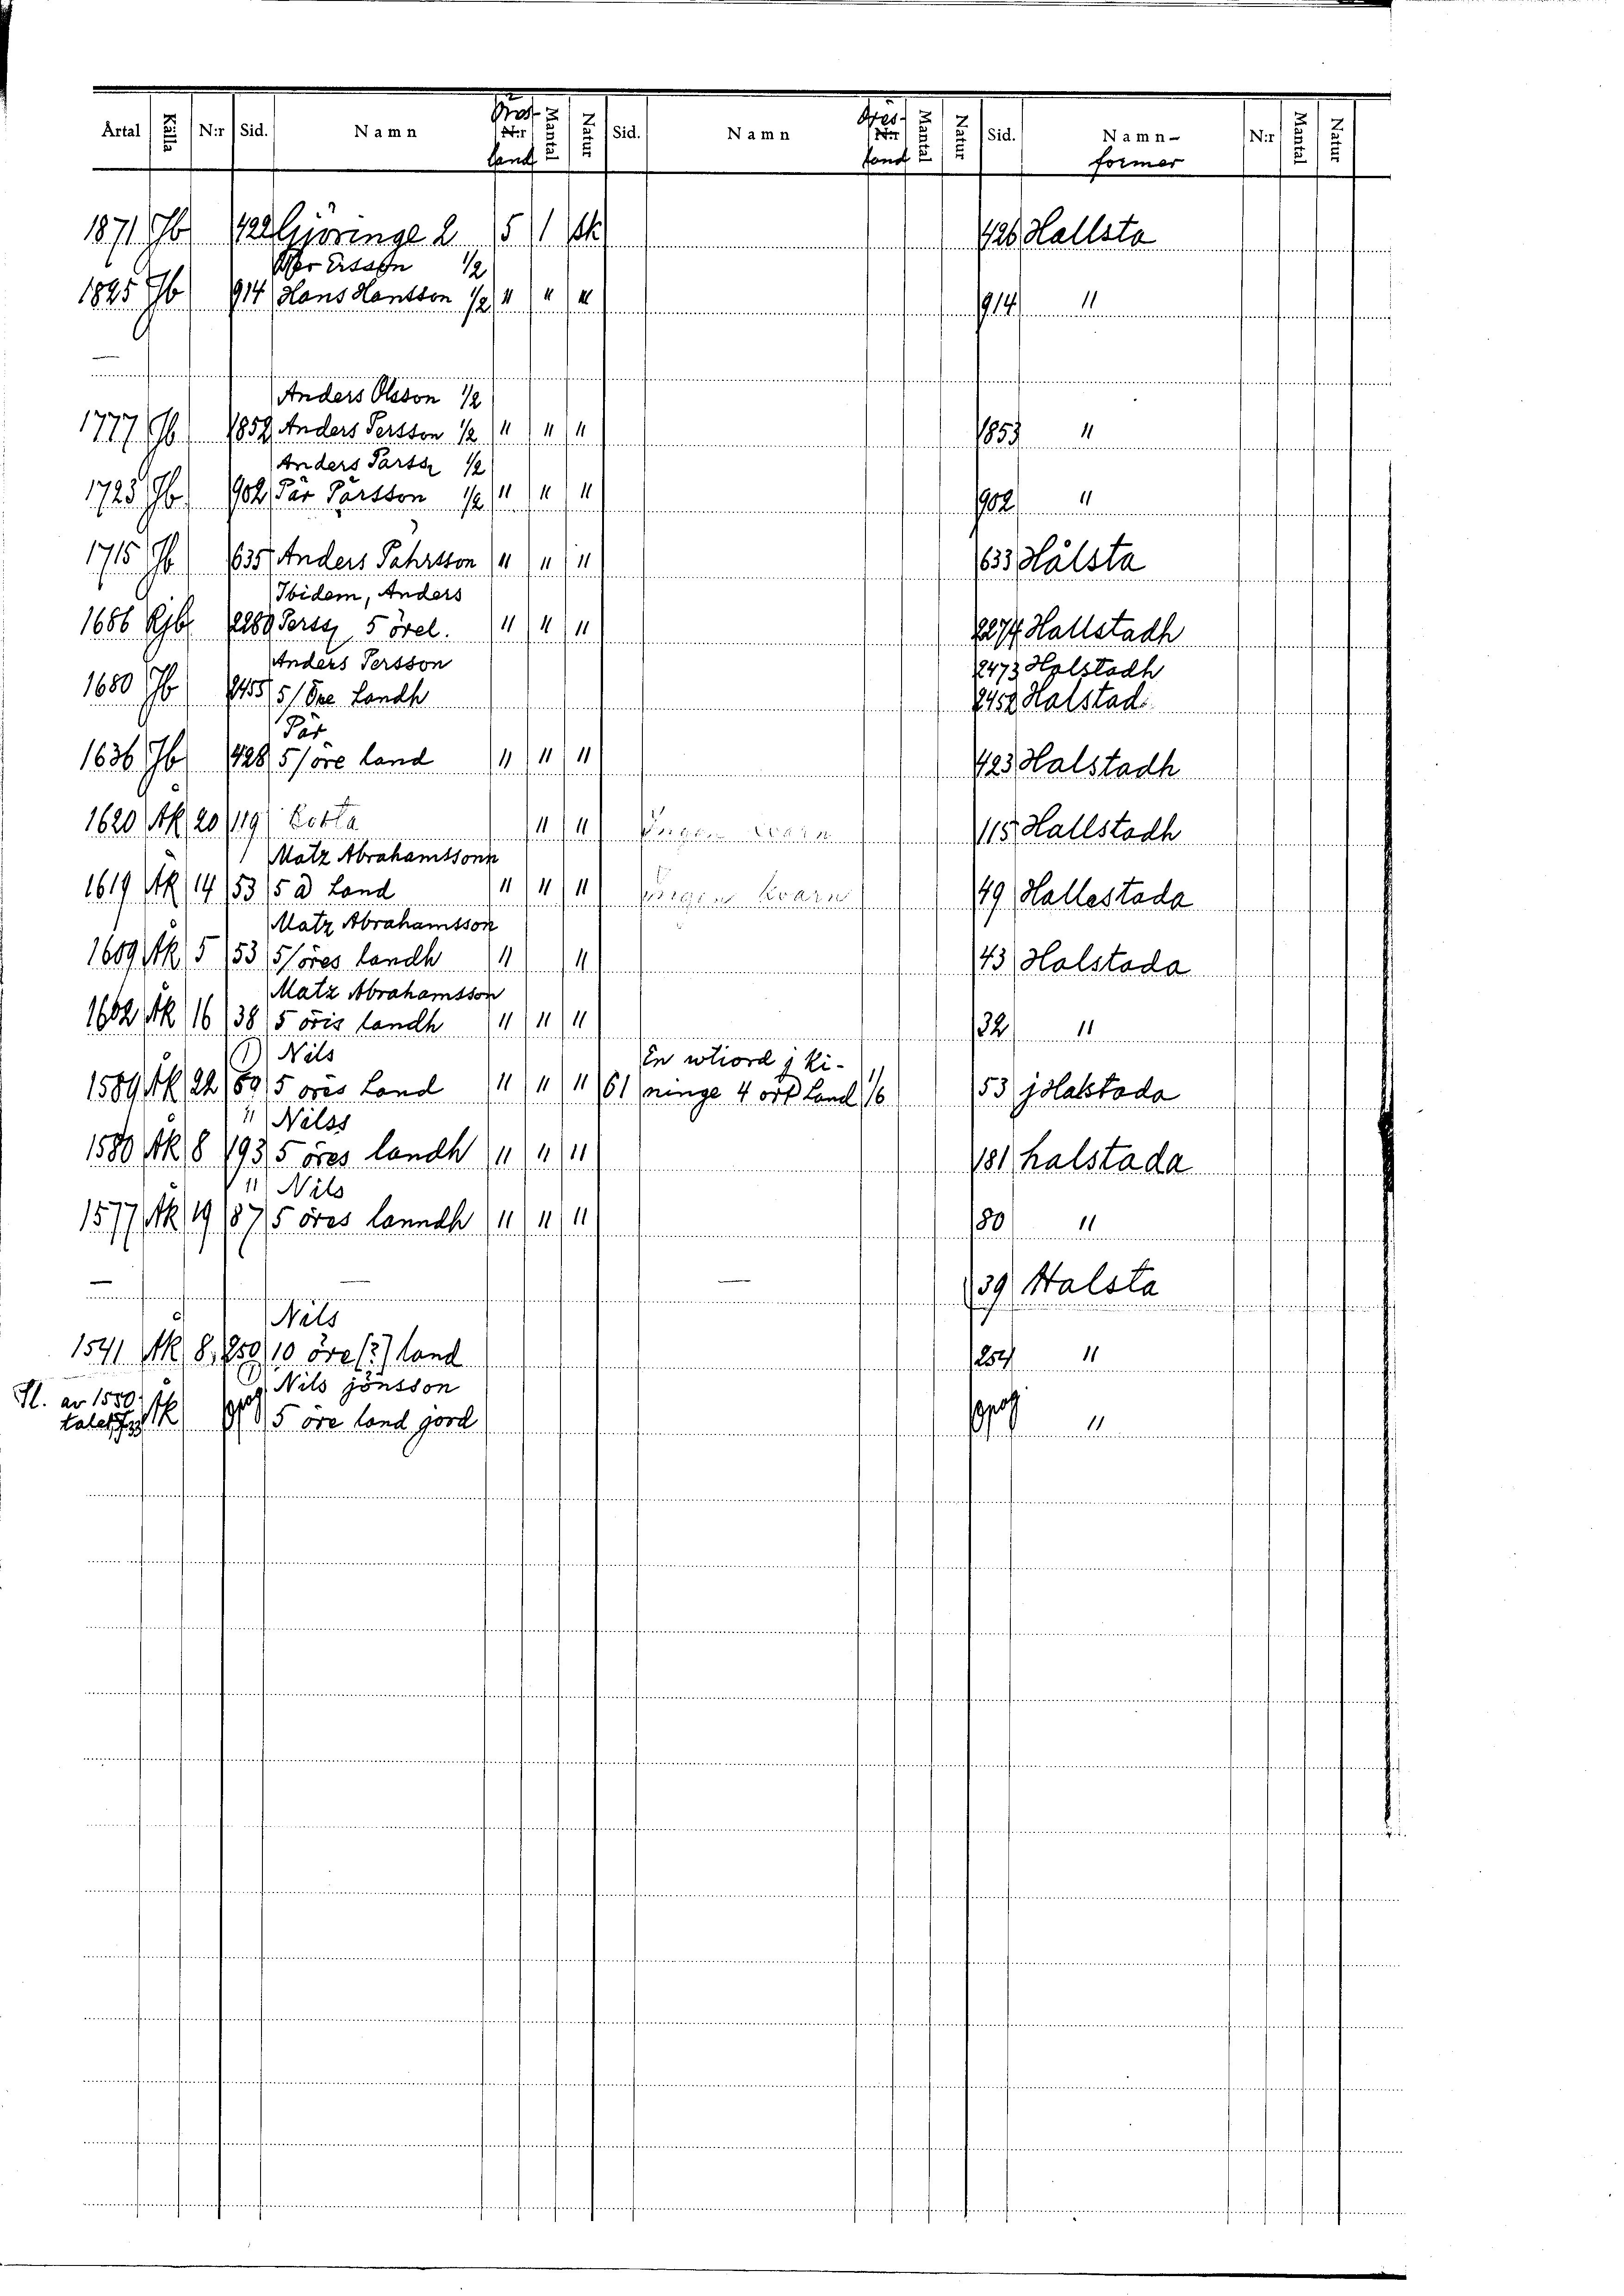 Årtal Källa N:r Sid. Namn Öres- N:r land Mantal Natur Sid. Namn Öres- N:r land Mantal Natur Sid. Namn-former N:r Mantal Natur
1871 Jb 422 Gjöringe 2 5 1 sk 426 Hallsta
Per Ersson 1/2
1825 Jb 914 Hans Hansson 1/2 " " " 914 "
—
Anders Olsson 1/2
1777 Jb 1852 Anders Persson 1/2 " " " 1853 "
Anders Parss 1/2
1725 Jb 902 Pär Pärsson 1/2 " " " 902 "
1715 Jb 635 Anders Pahrsson " " " 633 Hålsta
Ibidem, Anders
1686 Rjb 2280 Perss 5 örel. " " " 2274 Hallstadh
Anders Persson 2473 Halstadh
1680 Jb 2455 5/ Öre Landh 2452 Halstad
Pär
1636 Jb 428 5/ öre land " " " 423 Halstadh
1620 Åk 20 119 " " Ingen kvarn 115 Hallstadh
Matz Abrahamssonn
1619 Åk 14 53 5 Land " " " Ingen kvarn 49 Hallestada
Matz Abrahamsson
1609 Åk 5 53 5/ öres landh " " 43 Halstada
Matz Abrahamsson
1602 Åk 16 38 5 öris landh " " " 32 "
1) Nils En wtiord j Ki-
1589 Åk 22 60 5 öris Land " " " 61 ninge 4 Land 1/6 53 j Halstada
" Nilss
1580 Åk 8 193 5 öres landh " " " 181 halstada
" Nils
1577 Åk 19 87 5 öres lanndh " " " 80 "
— — — 39 Halsta
Nils
1541 Åk 8 259 10 öre (?) land 254 "
1) Nils jönsson
Sl. av 1550-
talet Åk opag 5 öre land jord opag "